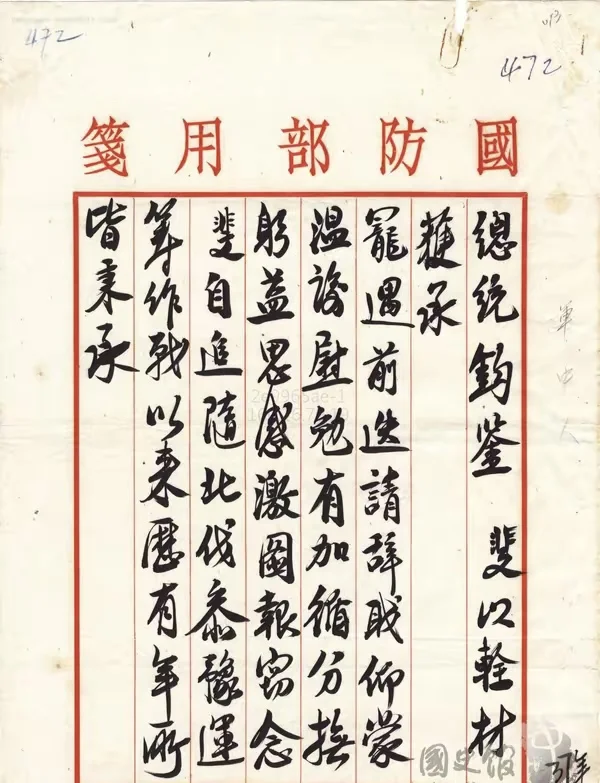 472
472
國防部用箋
總統鈞鑒 斐以輇材
獲承
寵遇前迭請辭職仰蒙
溫諭慰勉有加循分撫
躬益思感激圖報竊念
斐自追隨北伐參豫運
籌作戰以來歷有年所
皆秉承
國史館
37年